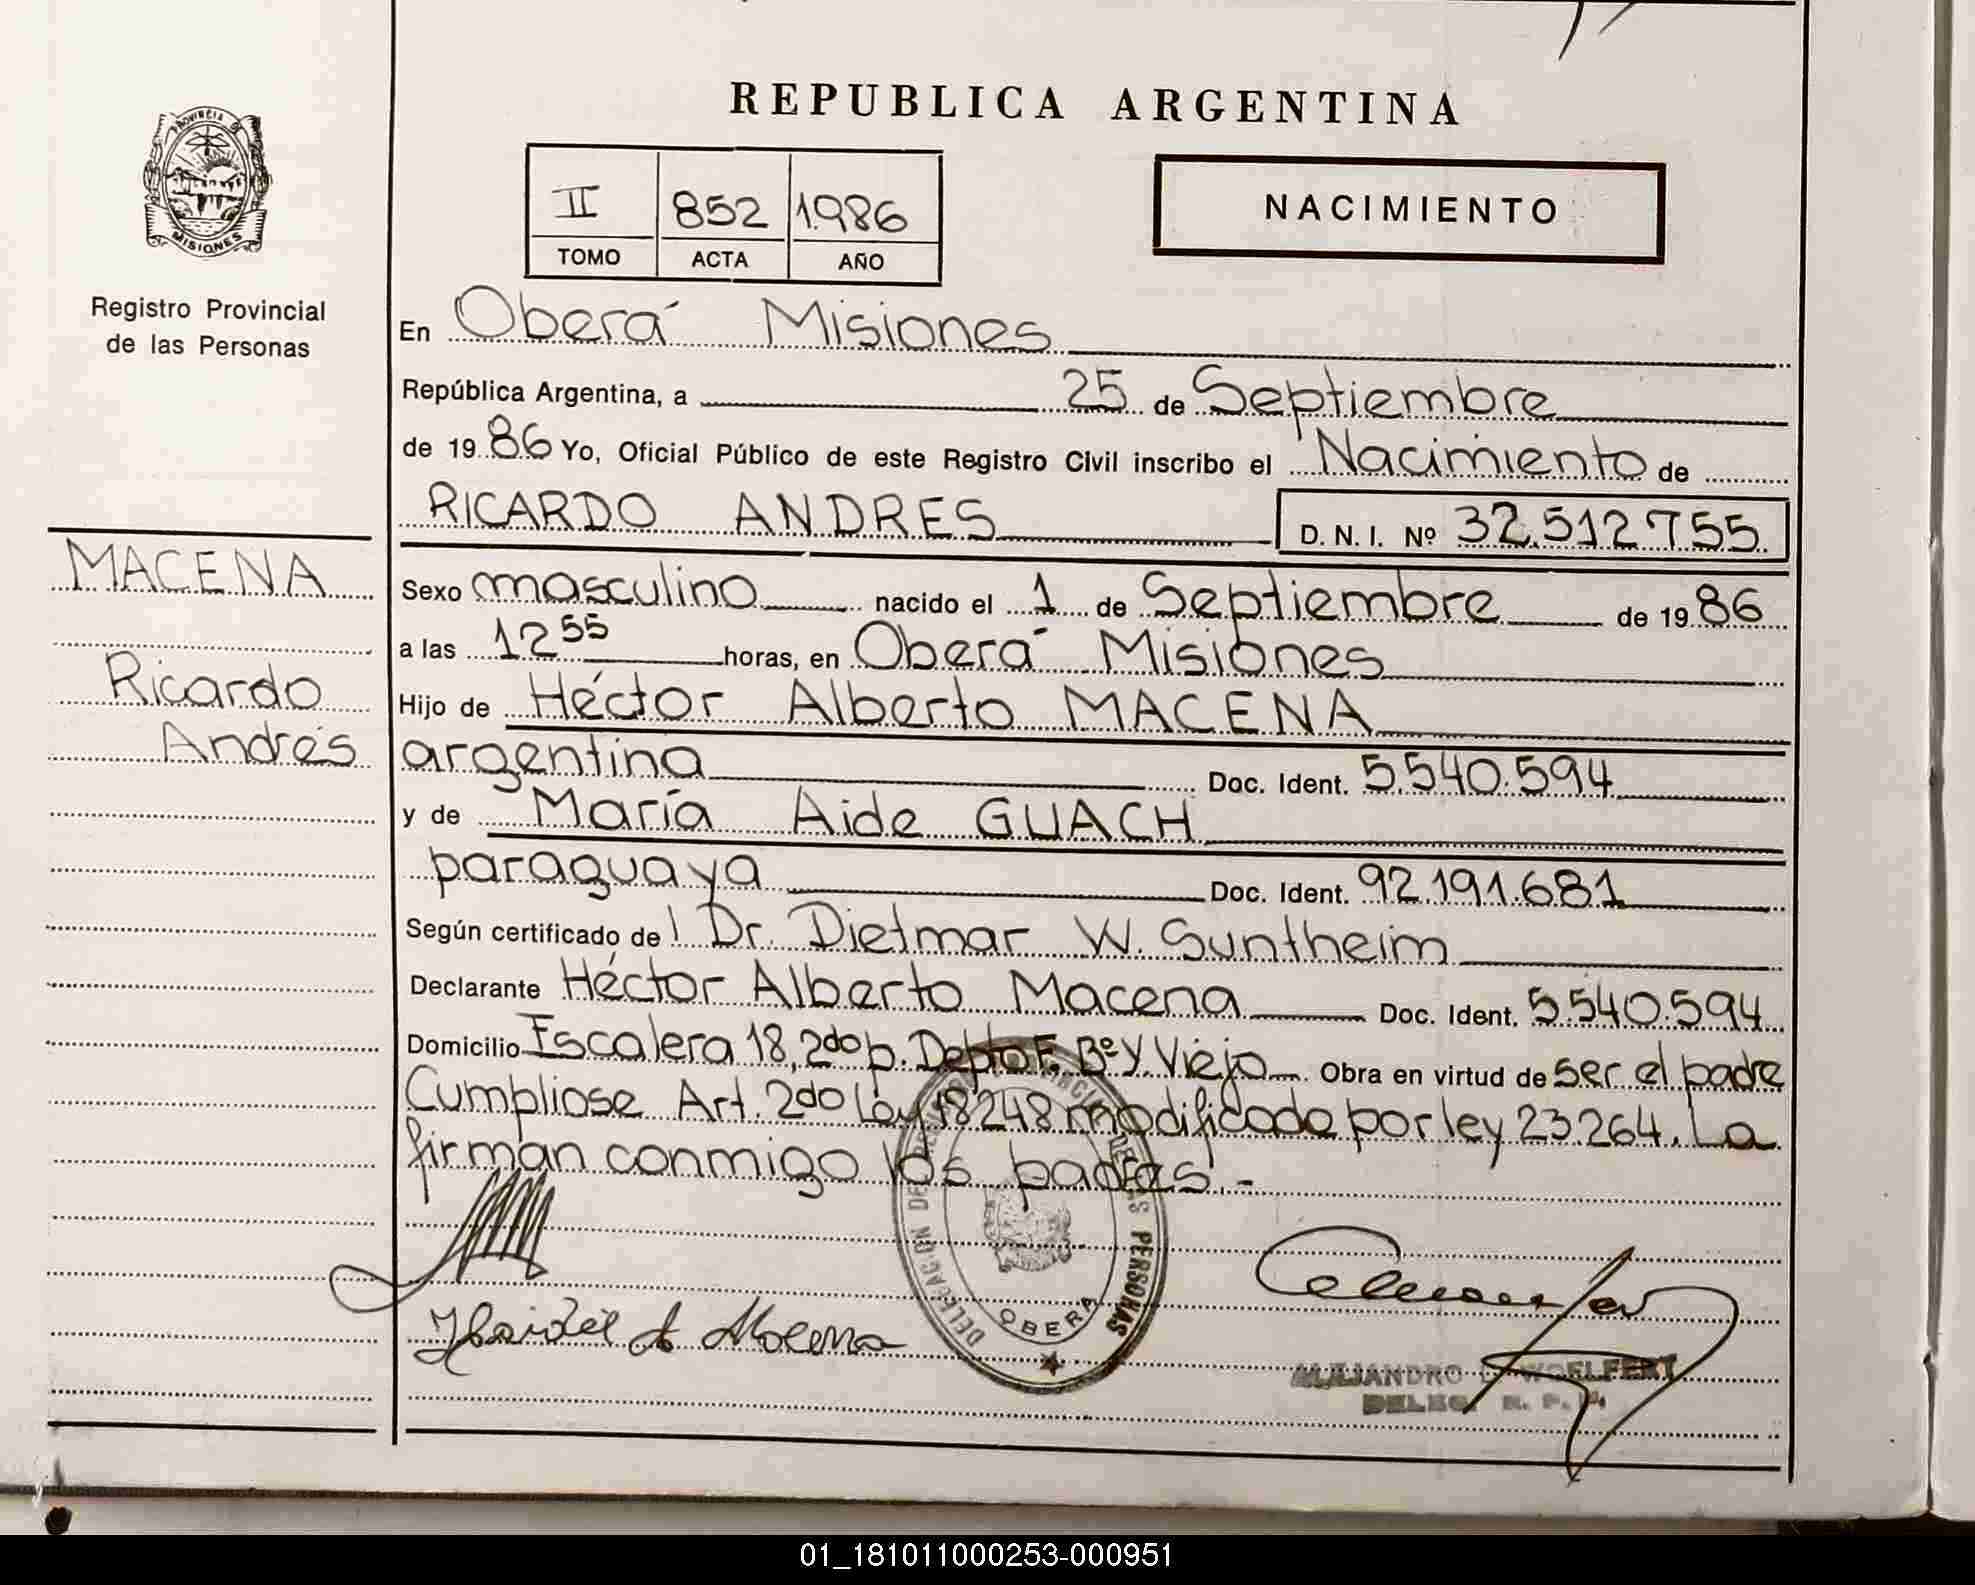 REPUBLICA ARGENTINA
PROVINCIA DE
MISIONES
Registro Provincial
de las Personas
II 852 1.986
TOMO ACTA AÑO
NACIMIENTO
En Oberá Misiones
República Argentina, a 25 de Septiembre
de 19 86 Yo, Oficial Público de este Registro Civil inscribo el Nacimiento de
RICARDO ANDRES D. N. I. Nº 32.512.755
MACENA
Ricardo
Andrés
Sexo masculino nacido el 1 de Septiembre de 19 86
a las 12 55 horas, en Oberá Misiones
Hijo de Héctor Alberto MACENA
argentina Doc. Ident. 5.540.594
y de María Aide GUACH
paraguaya Doc. Ident. 92.191.681
Según certificado de l Dr. Dietmar W. Suntheim
Declarante Héctor Alberto Macena Doc. Ident. 5.540.594
Domicilio Escalera 18, 2do p. Depto F. Bº Y. Viejo Obra en virtud de ser el padre
Cumpliose Art. 2do Ley 18248 modificado por ley 23.264. La
firman conmigo los padres.-
DELEGACION DE PERSONAS
OBERA
ALEJANDRO WOELFERT
DELEG. R. P. P.
01_181011000253-000951